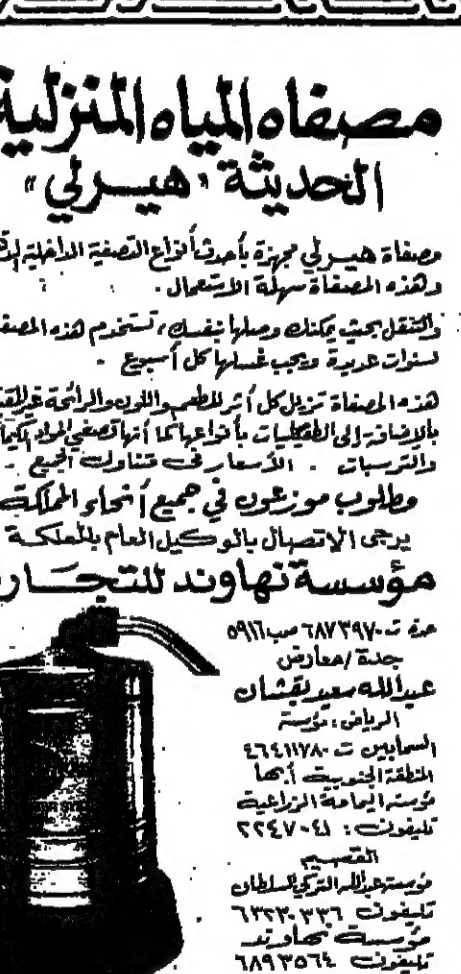 مصفاه المياه المنزلية
الحديثة "هيرلي"
مصفاة هيرلي مجهزة بأحدث أنواع التصفية الداخلية
وهذه المصفاة سهلة الاستعمال .
والتنقل بحيث يمكنك وصلها بنفسك ، تستخدم هذه
لسنوات عديدة ويجب غسلها كل أسبوع .
هذه المصفاة تزيل كل أثر للطعم واللون والرائحة
بالإضافة إلى الطفيليات بأنواعها كما أنها تصفي المواد
والترسبات . الأسعار في متناول الجميع .
مطلوب موزعون في جميع أنحاء المملكة
يرجى الاتصال بالوكيل العام بالمملكة
مؤسسة نهاوند
جدة ت ٦٨٧٣٩٧٠ ص ب ٥٩١٦
جدة / معارض
عبدالله سعيد بقشان
الرياض : مؤسسة
ت ٤٦٤١١٧٨٠
المنطقة الجنوبية أبها
مؤسسة اليمامة الزراعية
تليفون : ٢٢٤٧٠٤١
القصيم
مؤسسة عبدالله التركي السلطان
تليفون ٦٣٢٣٠٣٣٦
مؤسسة نهاوند
تليفون ٦٨٩٣٥٦٤